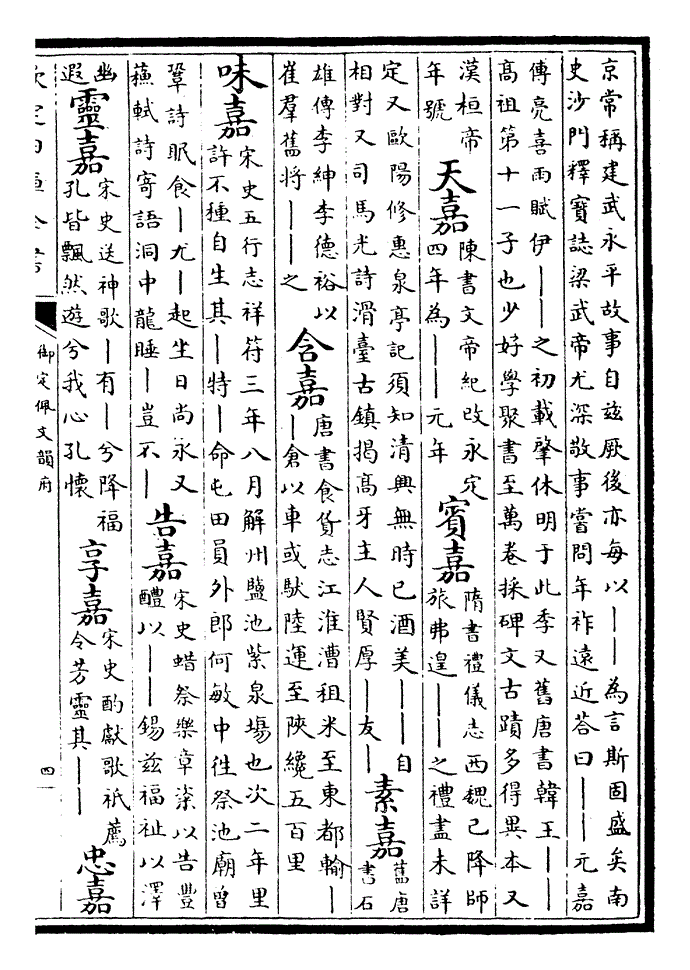 京常稱建武永平故事自兹厥後亦每以——為言斯固盛矣南
史沙門釋寶誌梁武帝尤深敬事嘗問年祚遠近答曰——元嘉
傳亮喜雨賦伊——之初載肇休明于此季又舊唐書韓王——
髙祖第十一子也少好學聚書至萬卷採碑文古蹟多得異本又
漢桓帝
年號
天嘉
陳書文帝紀改永定
四年為——元年
賓嘉
隋書禮儀志西魏已降師
旅弗遑——之禮盡未詳
定又歐陽修惠泉亭記須知清興無時已酒美———自
相對又司馬光詩滑臺古鎮揭髙牙主人賢厚——友—
素嘉
舊唐
書石
雄傳李紳李德裕以
崔羣舊將——之
含嘉
唐書食貨志江淮漕租米至東都輸—
—倉以車或馱陸運至陝纔五百里
味嘉
宋史五行志祥符三年八月解州鹽池紫泉塲也次二年里
許不種自生其—特—命屯田員外郎何敏中徃祭池廟曾
鞏詩眠食—尤—起坐日尚永又
蘓軾詩寄語洞中龍睡—豈不—
告嘉
宋史蜡祭樂章粢以告豐
醴以——錫兹福祉以澤
幽
遐
靈嘉
宋史送神歌—有—兮降福
孔皆飄然遊兮我心孔懷
享嘉
宋史酌獻歌祇薦
令芳靈其——
忠嘉
欽定四庫全書
御定佩文韻府
四